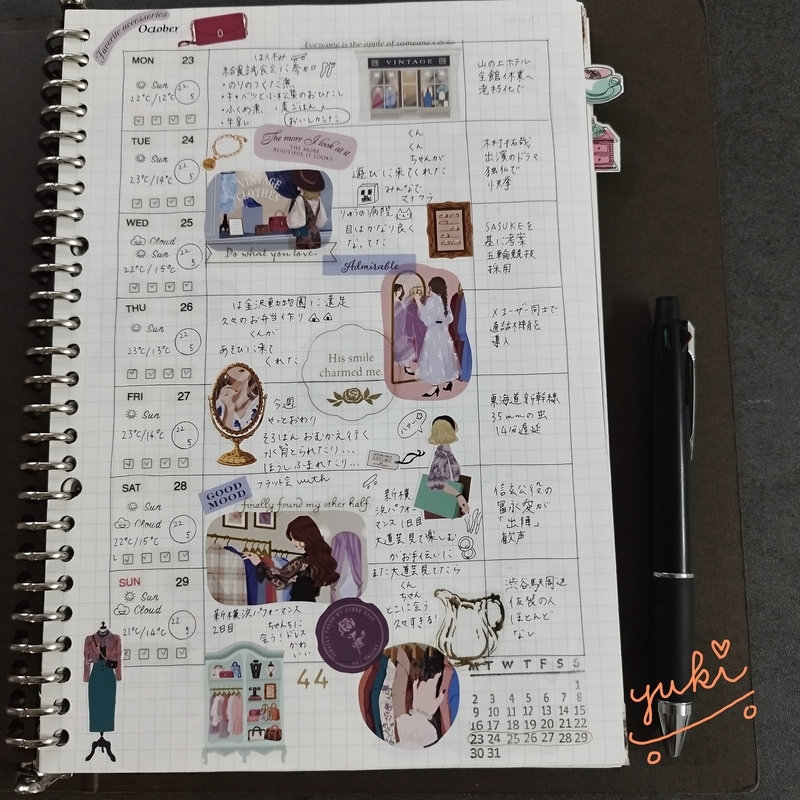 Favorite accessories
October
Everyone is the apple of someone's eye.
MON 23
Sun
22℃/12℃
22
5
は休み
給食試食会に参加
・のりのつくだ煮
・キャベツと小松菜のおひたし
・ふくめ煮 ・麦ごはん
・牛乳
おいしかった
VINTAGE
山の上ホテル
全館休業へ
老朽化で
TUE 24
Sun
23℃/13℃
22
5
The more I look at it
THE MORE
BEAUTIFUL IT LOOKS
VINTAGE
CLOTHES
くん
くん
ちゃんが
遊びに来てくれた
みんなで
マイクラ
木村拓哉
出演のドラマ
独仏で
快挙
WED 25
Cloud
Sun
22℃/15℃
22
5
Do what you love.
りゅう病院
目はかなり良く
なってた
Admirable
SASUKEを
基に考案
五輪競技
採用
THU 26
Sun
23℃/13℃
22
5
は金沢動物園に遠足
久々のお弁当作り
くんが
あそびに来て
くれた
His smile
charmed me.
Xユーザー同士で
通話機能を
導入
FRI 27
Sun
23℃/14℃
22
5
今週
やっとおわり
そろばんおむかえ行く
水筒とられたり…
ぼうしふまれたり…
東海道新幹線
35mmの虫
14分遅延
SAT 28
Sun
Cloud
22℃/15℃
22
5
GOOD
MOOD
フラット会 with
finally found my other half
新横
浜パフォー
マンス1日目
大道芸見て楽しむ
がお手伝いに
信玄公役の
冨永愛が
「出陣」
歓声
SUN 29
Sun
Cloud
21℃/14℃
22
5
新横浜パフォーマンス
2日目
ちゃんちに
会う!ドレス
かわ
いい
また大道芸見てたら
くん
ちゃん
とこに会う
久々すぎる!
渋谷駅周辺
仮装の人
ほとんど
なし
44
M T W T F S S
1
2 3 4 5 6 7 8
9 10 11 12 13 14 15
16 17 18 19 20 21 22
23 24 25 26 27 28 29
30 31
yuki